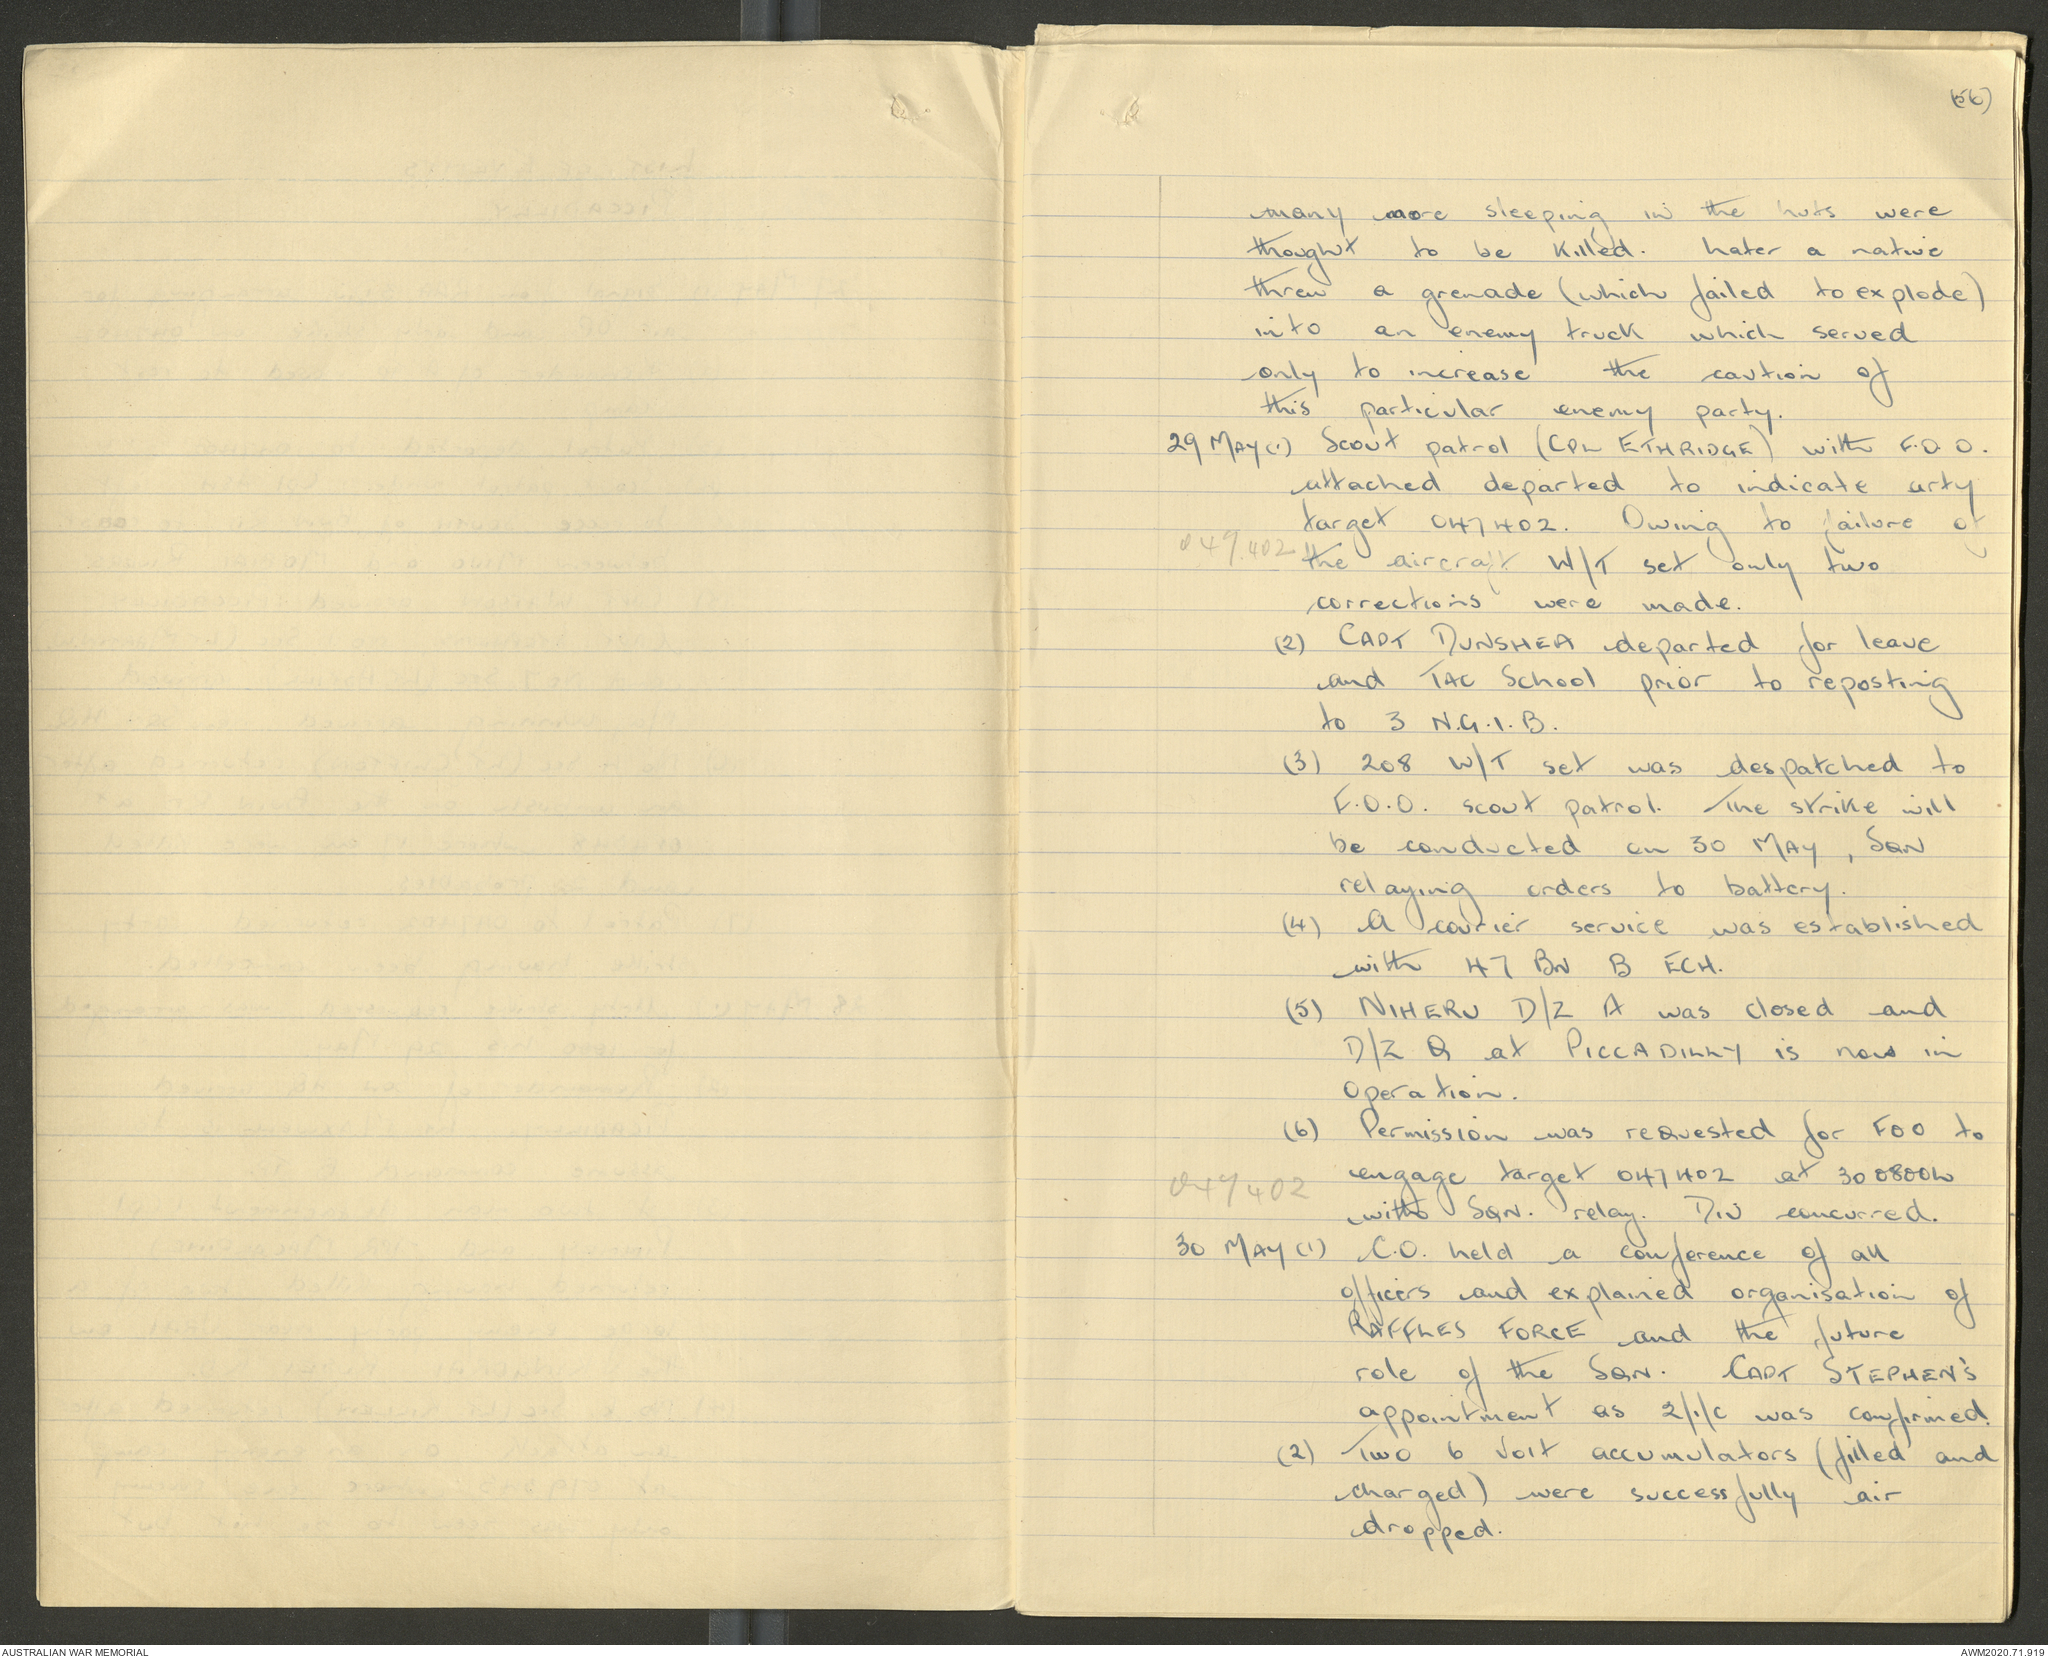 (56)
many more sleeping in the huts were
thought to be killed. Later a native
threw a grenade (which failed to explode)
into an enemy truck which served
only to increase the caution of
this particular enemy party.
29 MAY (1) Scout patrol (CPL ETHRIDGE) with F.O.O.
attached departed to indicate arty
target 047402. Owing to failure of
049.402
the aircraft W/T set only two
corrections were made.
(2) CAPT DUNSHEA departed for leave
and TAC School prior to reposting
to 3 N.G.I.B.
(3) 208 W/T set was despatched to
F.O.O. scout patrol. The strike will
be conducted on 30 MAY, SQN
relaying orders to battery.
(4) A courier service was established
with 47 BN B ECH.
(5) NIHERU D/Z A was closed and
D/Z Q at PICCADILLY is now in
operation.
(6) Permission was requested for FOO to
engage target 047402 at 300800L
049402
with SQN. relay. DIV concurred.
30 MAY (1) C.O. held a conference of all
officers and explained organisation of
RAFFLES FORCE and the future
role of the SQN. CAPT STEPHEN'S
appointment as 2/i/c was confirmed.
(2) Two 6 volt accumulators (filled and
charged) were successfully air
dropped.
AUSTRALIAN WAR MEMORIAL
AWM2020.71.919